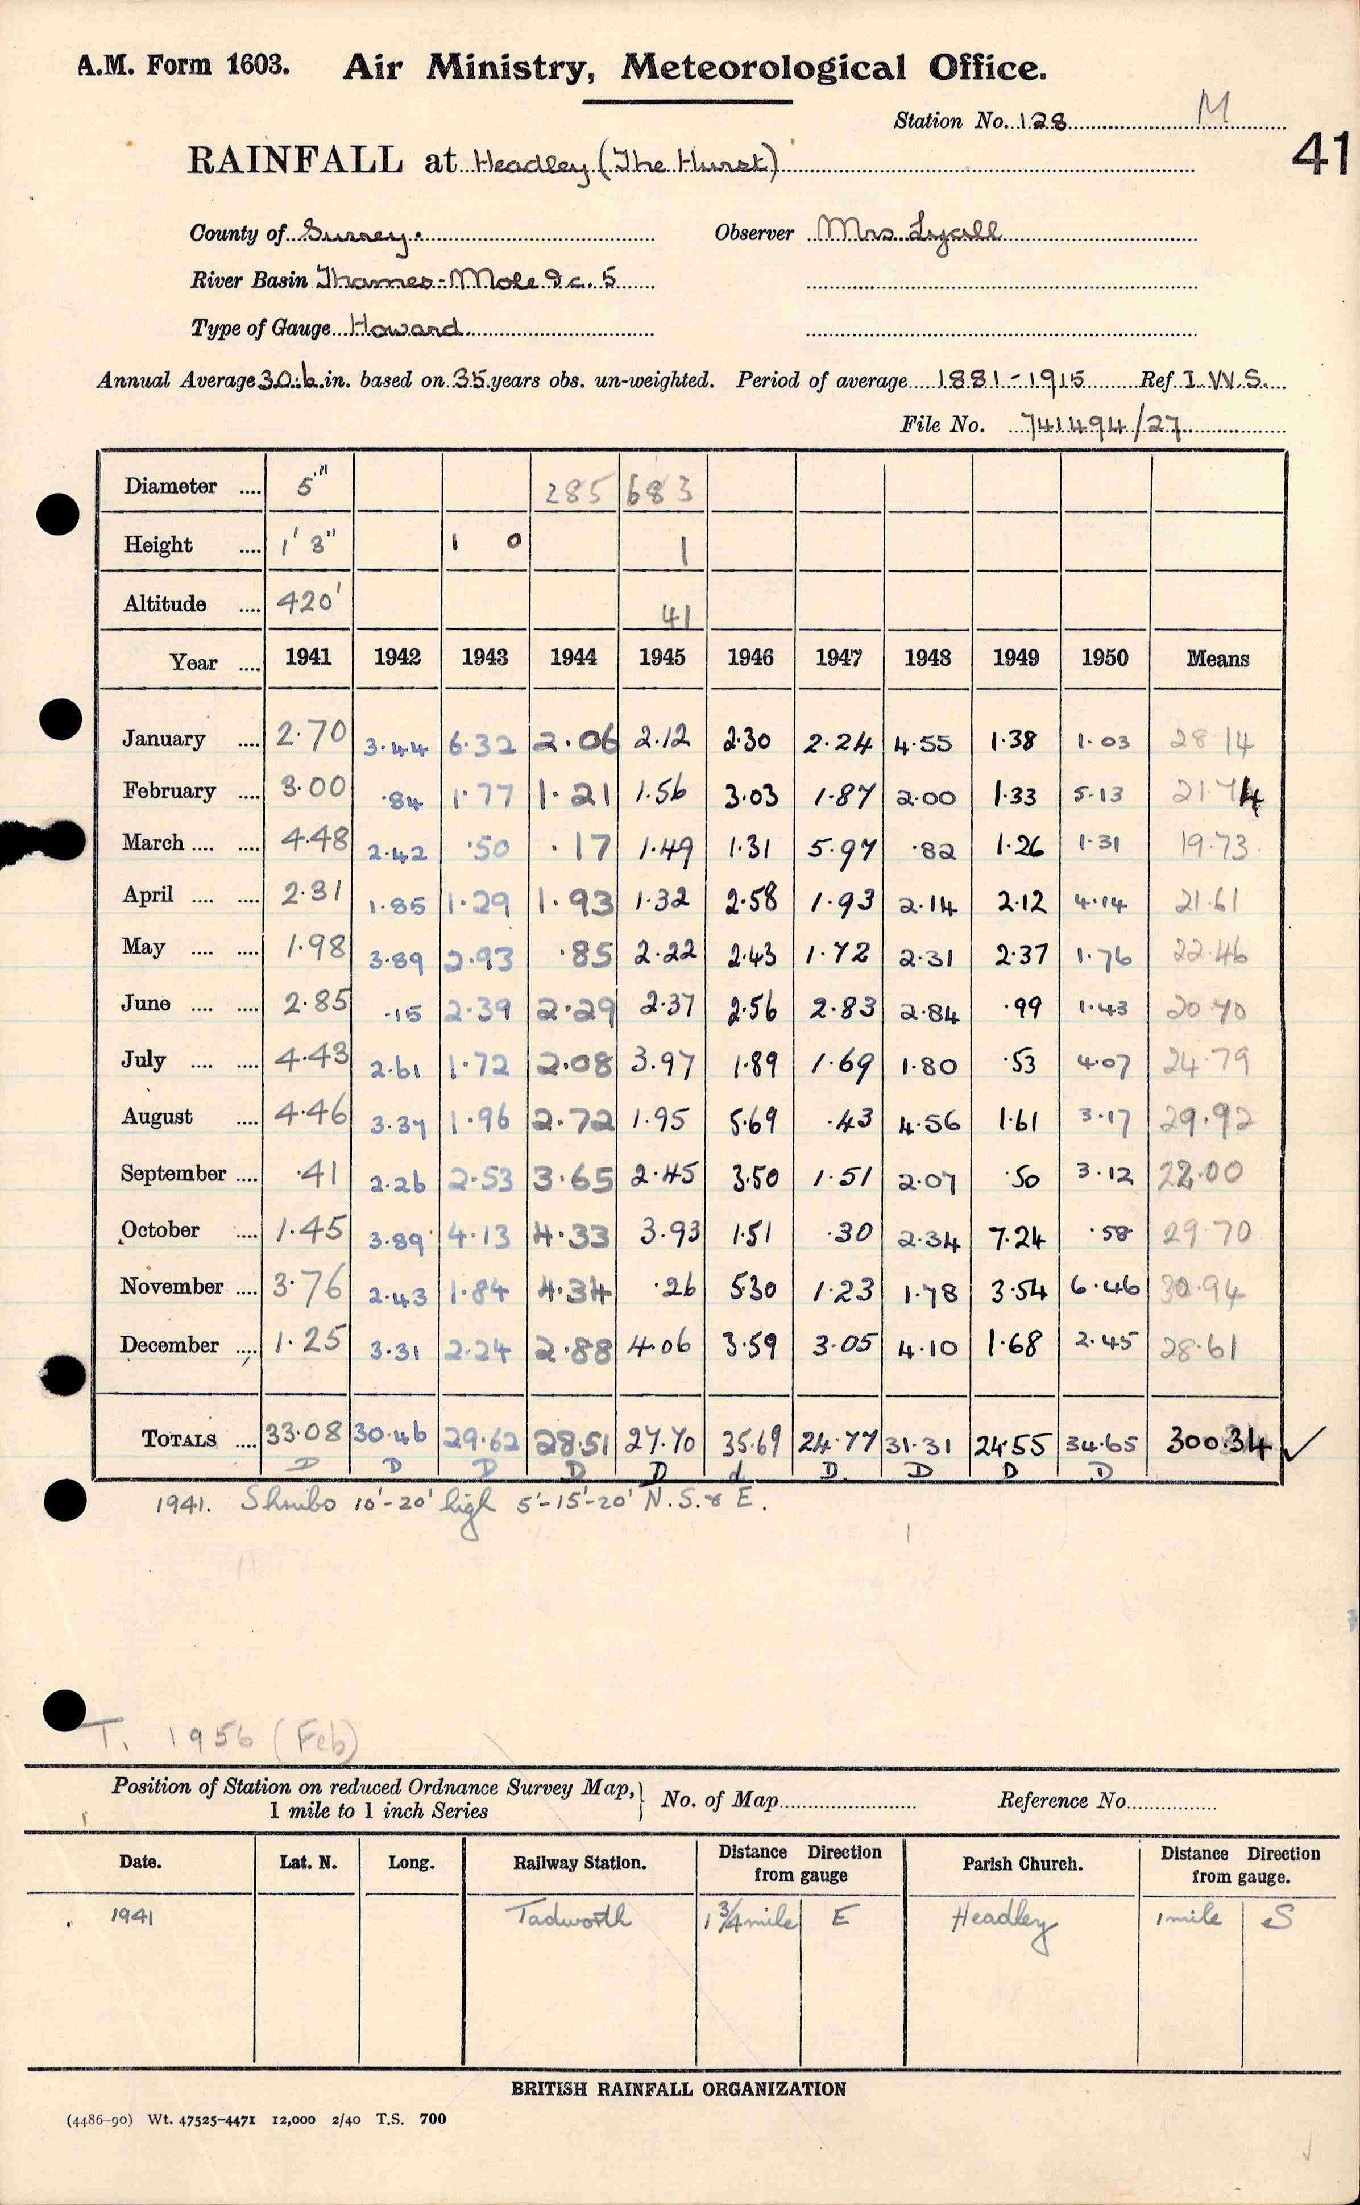 A.M. Form 1603. Air Ministry, Meteorological Office.
Station No. 128 M
41
RAINFALL at Headley (The Hurst)
County of Surrey. Observer Mrs Lyall
River Basin Thames-Mole &c. 5
Type of Gauge Howard
Annual Average 30.6 in. based on 35 years obs. un-weighted. Period of average 1881-1915 Ref I.W.S.
File No. 741494/27
Diameter .... 5" 285 683
Height .... 1' 3" 1 0 1
Altitude .... 420' 41
Year .... 1941 1942 1943 1944 1945 1946 1947 1948 1949 1950 Means
January .... 2.70 3.44 6.32 2.06 2.12 2.30 2.24 4.55 1.38 1.03 28 14
February .... 3.00 .84 1.77 1.21 1.56 3.03 1.87 2.00 1.33 5.13 21.74
March .... .... 4.48 2.42 .50 .17 1.49 1.31 5.97 .82 1.26 1.31 19.73
April .... .... 2.31 1.85 1.29 1.93 1.32 2.58 1.93 2.14 2.12 4.14 21.61
May .... .... 1.98 3.89 2.93 .85 2.22 2.43 1.72 2.31 2.37 1.76 22.46
June .... .... 2.85 .15 2.39 2.29 2.37 2.56 2.83 2.84 .99 1.43 20 70
July .... .... 4.43 2.61 1.72 2.08 3.97 1.89 1.69 1.80 .53 4.07 24.79
August .... 4.46 3.37 1.96 2.72 1.95 5.69 .43 4.56 1.61 3.17 29.92
September .... .41 2.26 2.53 3.65 2.45 3.50 1.51 2.07 .50 3.12 22.00
October .... 1.45 3.89 4.13 4.33 3.93 1.51 .30 2.34 7.24 .58 29.70
November .... 3.76 2.43 1.84 4.34 .26 5.30 1.23 1.78 3.54 6.46 30.94
December .... 1.25 3.31 2.24 2.88 4.06 3.59 3.05 4.10 1.68 2.45 28.61
TOTALS .... 33.08 30.46 29.62 28.51 27.70 35.69 24.77 31.31 24.55 34.65 300.34 ✓
D D D D D d D. D D D
1941. Shrubs 10'-20' high 5'-15'-20' N.S. & E.
T. 1956 (Feb)
Position of Station on reduced Ordnance Survey Map, } No. of Map Reference No.
1 mile to 1 inch Series
Date. Lat. N. Long. Railway Station. Distance from gauge Direction Parish Church. Distance from gauge. Direction
1941 Tadworth 1 3/4 mile E Headley 1 mile S
BRITISH RAINFALL ORGANIZATION
(4486-90) Wt. 47525-4471 12,000 2/40 T.S. 700